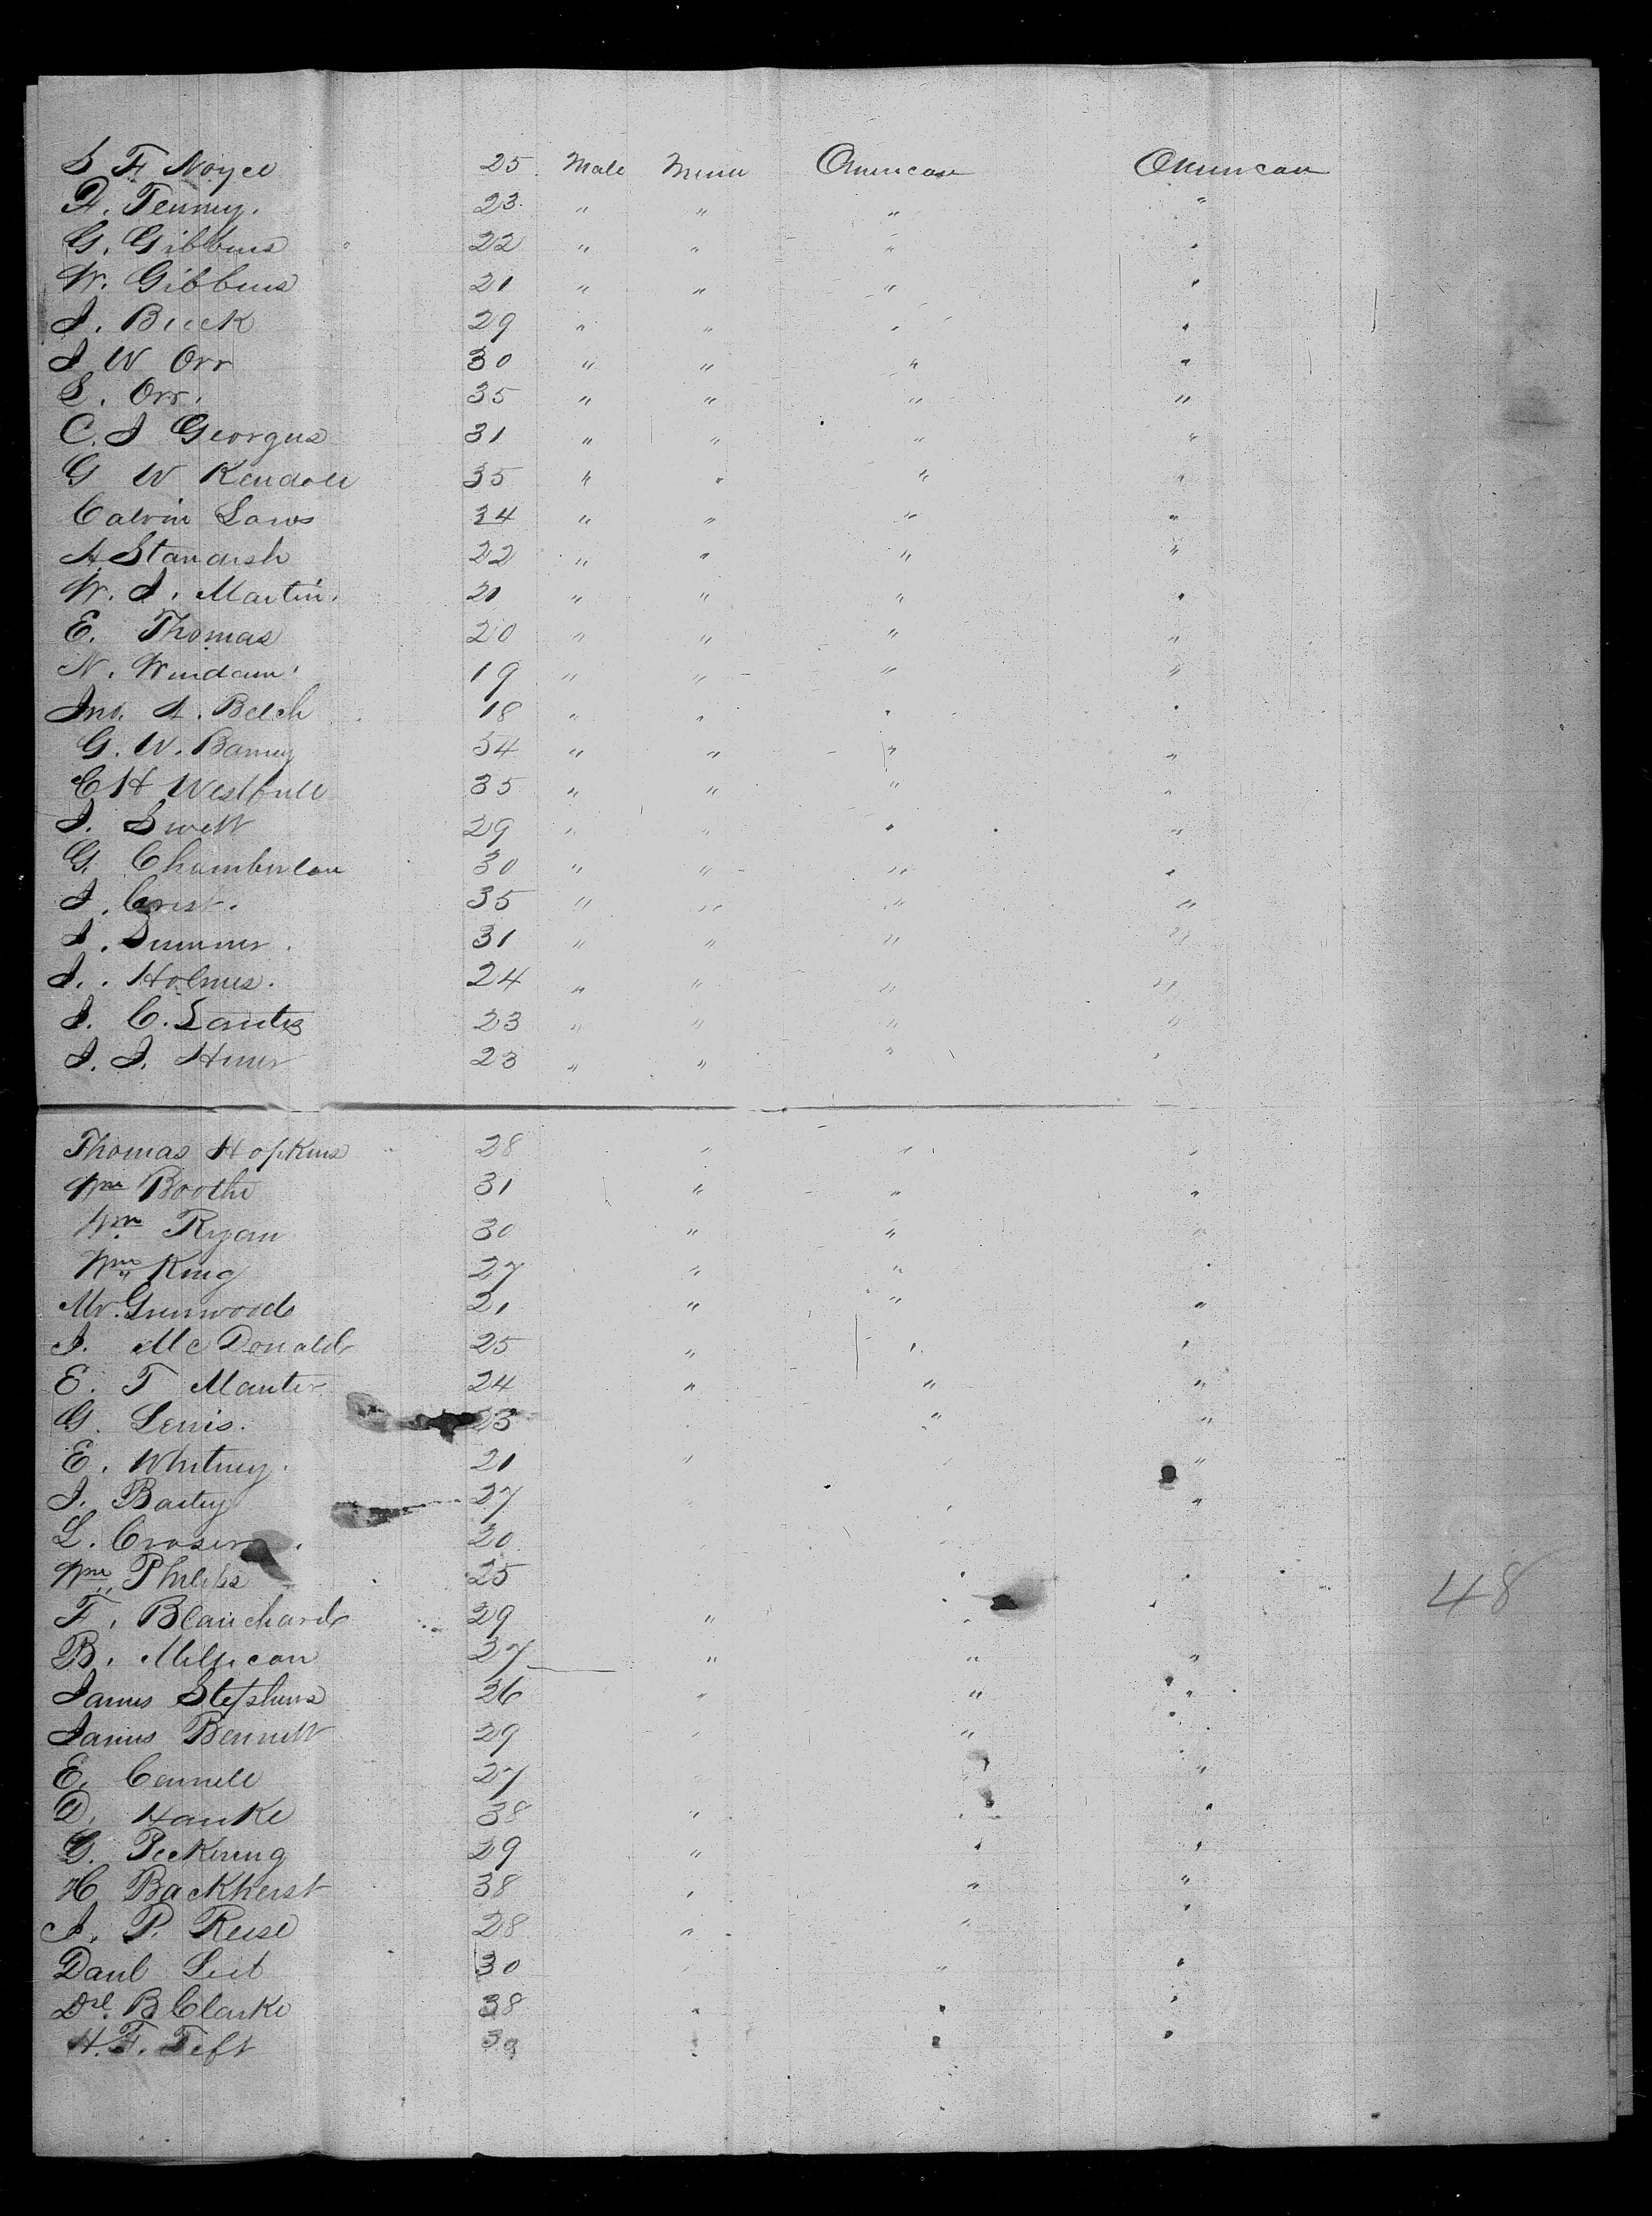 S F Noyce 25 Male Miner American American
F. Tenney. 23 " " " "
G. Gibbins 22 " " " "
W. Gibbins 21 " " " "
J. Buck 29 " " " "
J W Orr 30 " " " "
S. Orr. 35 " " " "
C. J Georgus 31 " " " "
G W Kendall 35 " " " "
Calvin Laws 34 " " " "
A Standish 22 " " " "
W. J. Martin. 21 " " " "
E. Thomas 20 " " " "
N. Windam 19 " " " "
Jno. A. Belch 18 " " " "
G. W. Barney 34 " " " "
C H Westfull 35 " " " "
J. Swett 29 " " " "
G. Chamberlan 30 " " " "
J. Crist. 35 " " " "
J. Summer. 31 " " " "
J. Holmes. 24 " " " "
J. C. Lantz 23 " " " "
J. J. 23 " " " "
Thomas Hopkins 28 " " "
Wm Boothe 31 " " "
Wm Ryan 30 " " "
Wm King 27 " " "
Mr. Grinwood 21 " " "
J. McDonald 25 " " "
E. T Manter 24 " " "
G. Lewis. 23 " "
E. Whitney. 21 " "
J. Baily 27 " "
L. Croser 20
Wm Philips 25 " "
F. Blanchard 29 " " "
B. Millican 27 " " "
James Stephens 26 " " "
James Bennett 29 " " "
E. Cannell 27 " "
D. Hanke 38 " " "
G. Peckering 29 " " "
H Backherst 38 " " "
J. P. Reese 28 " " "
Danl 30 " " "
B Clarke 38 " " "
H. F. Teft 39 " " "
48